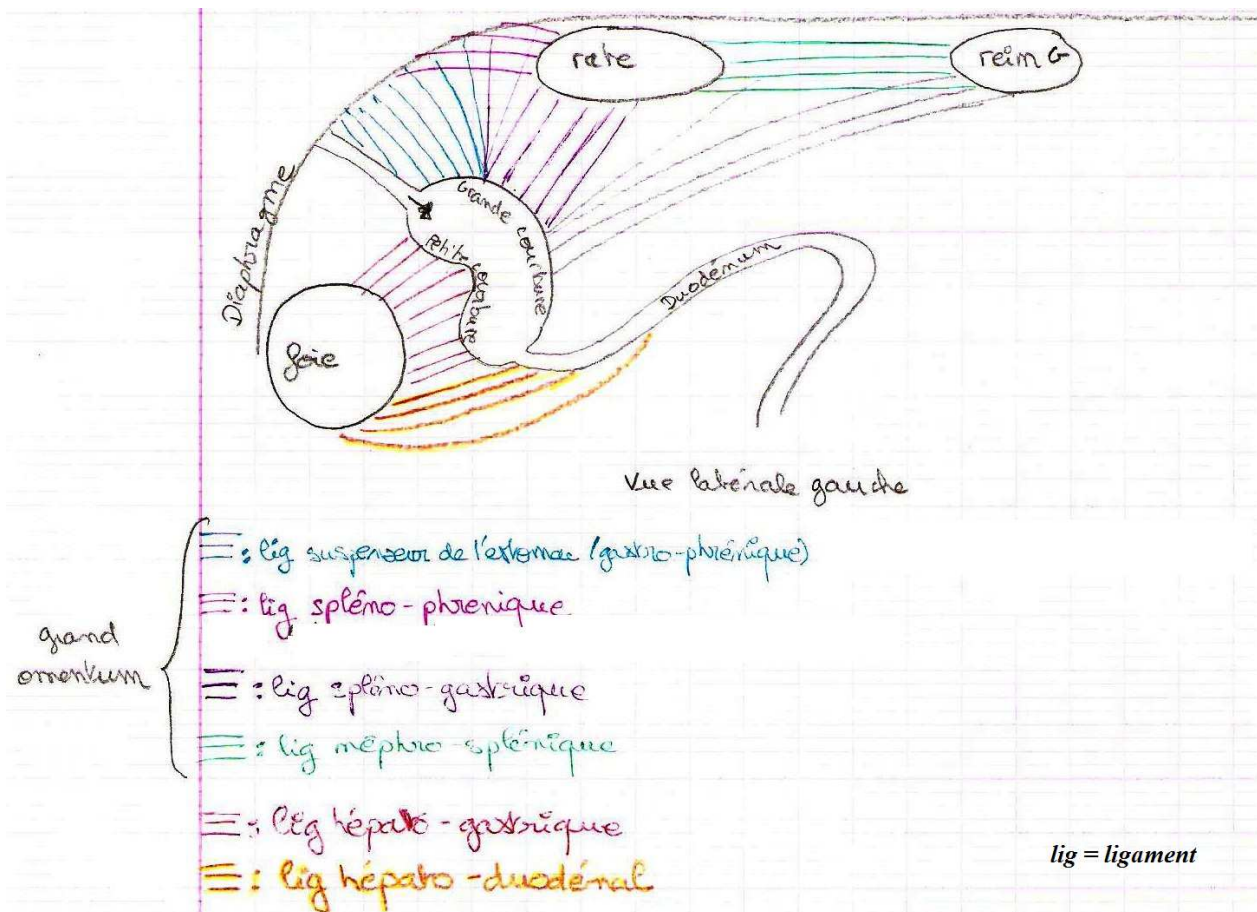 rate
rein G
Diaphragme
Grande courbure
Petite courbure
Duodénum
foie
Vue latérale gauche
grand
omentum
: lig suspenseur de l'estomac (gastro-phrénique)
: lig spléno-phrenique
: lig spléno-gastrique
: lig néphro-splénique
: lig hépato-gastrique
: lig hépato-duodénal
lig = ligament